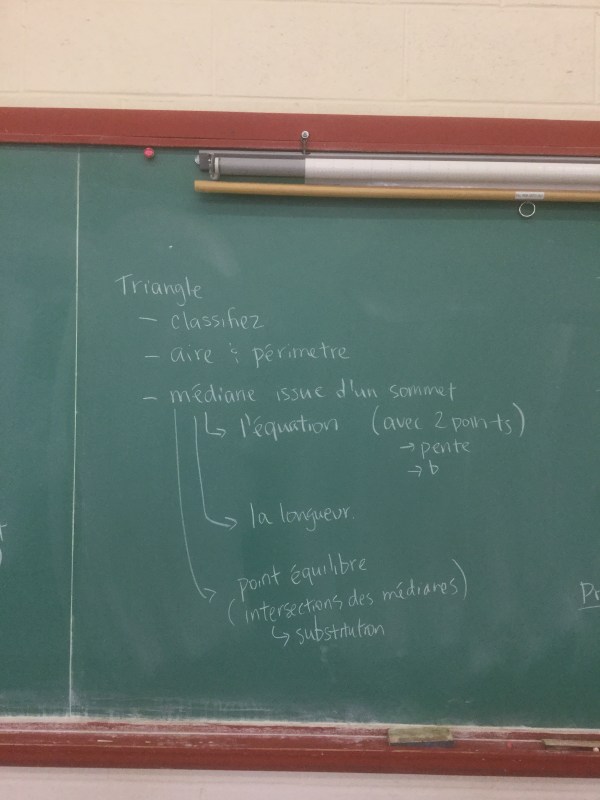 Triangle
- classifiez
- aire & périmetre
- médiane issue d'un sommet
↳ l'équation (avec 2 points)
→ pente
→ b
↳ la longueur.
↳ point équilibre
(intersections des médianes)
↳ substitution
Pr